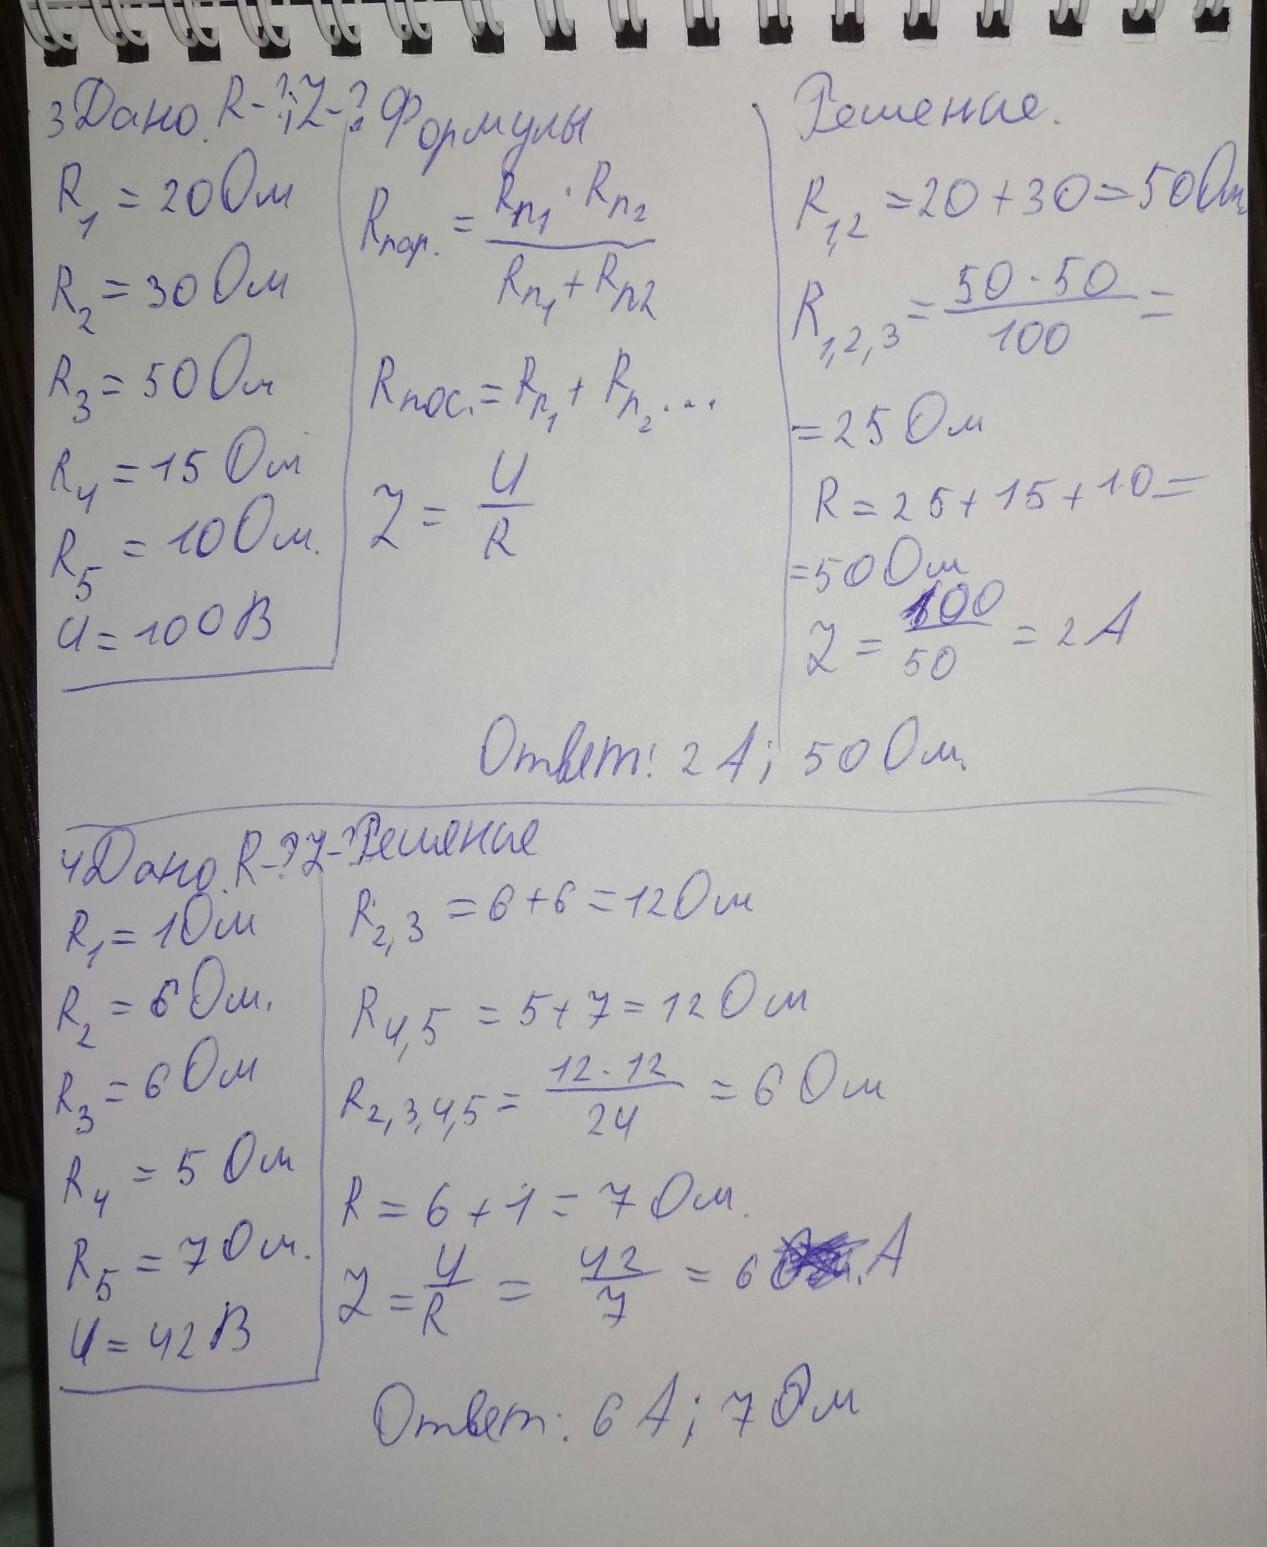 3 Дано. R-?; I-?
R₁ = 20 Ом
R₂ = 30 Ом
R₃ = 50 Ом
R₄ = 15 Ом
R₅ = 10 Ом.
U = 100 В
Формулы
Rпар. = (Rп₁ · Rп₂) / (Rп₁ + Rп₂)
Rпос. = Rп₁ + Rп₂...
I = U / R
Решение.
R₁,₂ = 20 + 30 = 50 Ом
R₁,₂,₃ = (50 · 50) / 100 =
= 25 Ом
R = 25 + 15 + 10 =
= 50 Ом
I = 100 / 50 = 2 А
Ответ: 2 А; 50 Ом.
4 Дано. R-? I-?
R₁ = 1 Ом
R₂ = 6 Ом.
R₃ = 6 Ом
R₄ = 5 Ом
R₅ = 7 Ом.
U = 42 В
Решение
R₂,₃ = 6 + 6 = 12 Ом
R₄,₅ = 5 + 7 = 12 Ом
R₂,₃,₄,₅ = (12 · 12) / 24 = 6 Ом
R = 6 + 1 = 7 Ом.
I = U / R = 42 / 7 = 6 А
Ответ: 6 А; 7 Ом